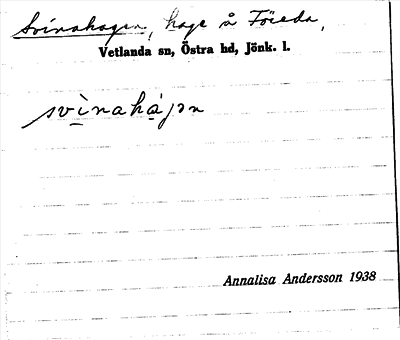 Svinahagen, hage å Föreda,
Vetlanda sn, Östra hd, Jönk. l.
svìnahágən
Annalisa Andersson 1938